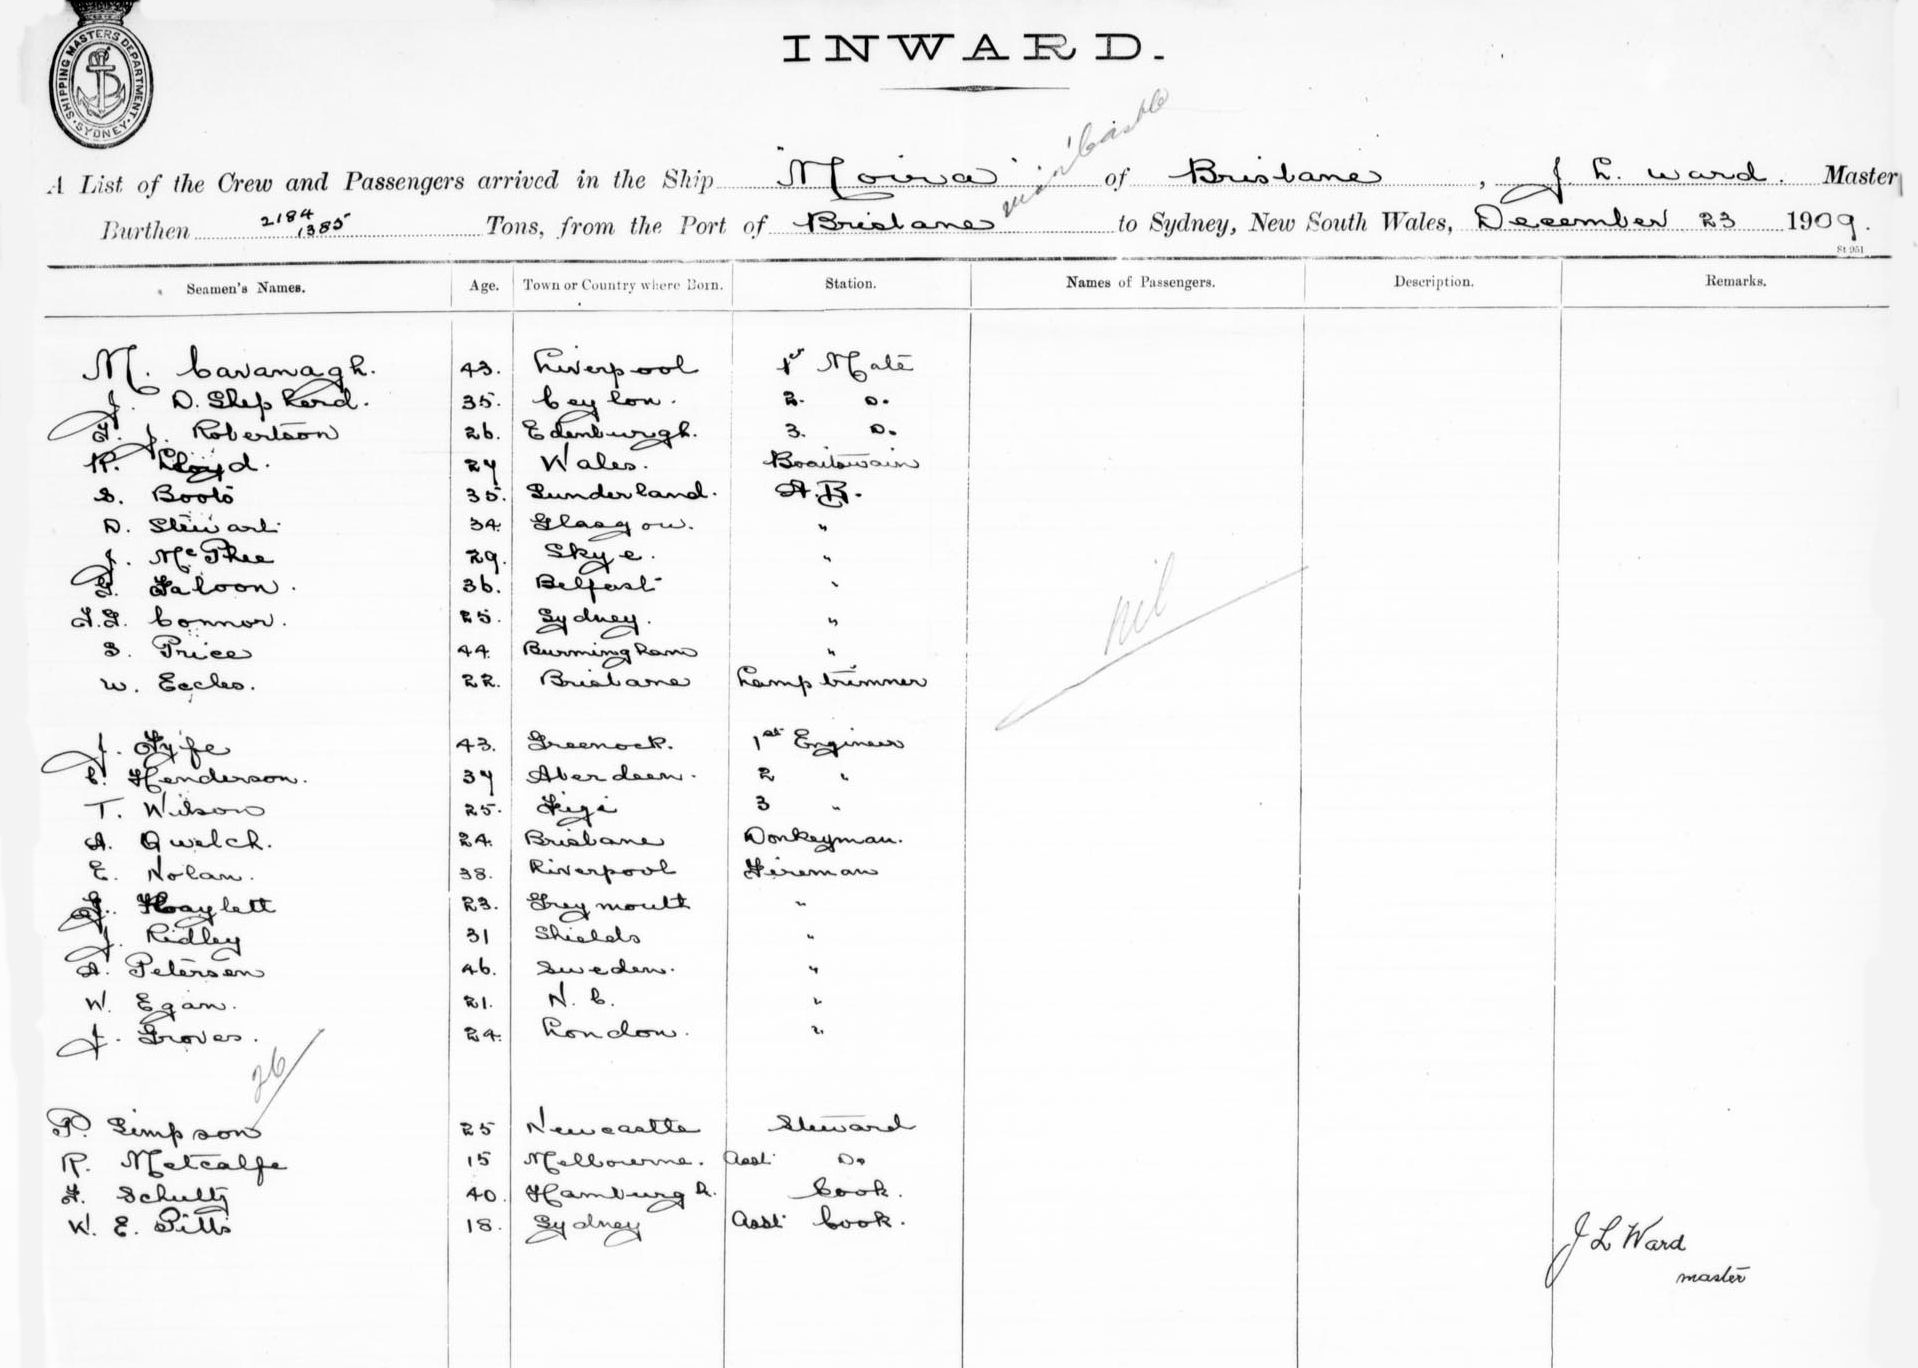 SHIPPING MASTERS DEPARTMENT
SYDNEY
INWARD.
A List of the Crew and Passengers arrived in the Ship "Moira" of Brisbane, J. L. Ward. Master
Burthen 2184 1385 Tons, from the Port of Brisbane to Sydney, New South Wales, December 23 1909.
St 951
Seamen's Names. Age. Town or Country where Born. Station. Names of Passengers. Description. Remarks.
M. Cavanagh. 43. Liverpool 1st Mate
J. D. Shepherd. 35. Ceylon. 2. Do.
J. Robertson 26. Edenburgh. 3. Do.
R. Lloyd. 27 Wales. Boatswain
S. Boots 35. Sunderland. A.B.
D. Stewart 34. Glasgow. "
J. McPhee 29. Skye. "
36. Belfast "
Connor. 25. Sydney. "
S. Price 44. Burmingham "
W. Eccles. 22. Brisbane Lamptrimner
nil
J. Fyfe 43. Greenock. 1st Engineer
C. Henderson. 37 Aberdeen. 2 "
T. Wilson 25. Figi 3 "
A. Quelch. 24. Brisbane Donkeyman.
E. Nolan. 38. Liverpool Fireman
Haylett 23. Greymouth "
J. Ridley 31 Shields "
A. Petersen 46. Sweden. "
W. Egan. 21. N. C. "
J. Groves. 24. London. "
26
P. Simpson 25 Newcastle Steward
R. Metcalfe 15 Melbourne. Asst Do
F. Schultz 40. Hamburgh. Cook.
W. E. Pitts 18. Sydney Asst Cook.
J L Ward
master